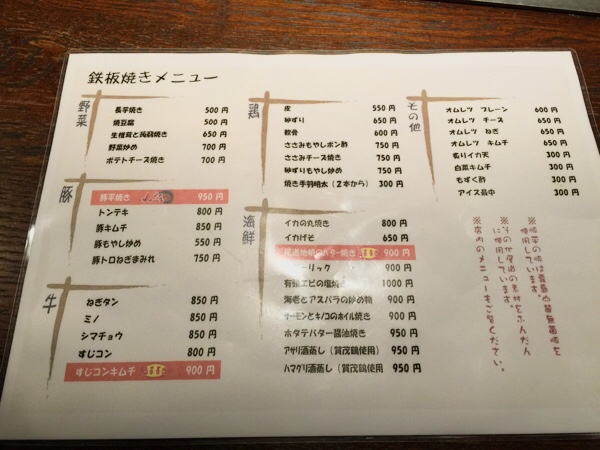 鉄板焼きメニュー
野菜
長芋焼き 500 円
焼豆腐 500 円
生椎茸と蒟蒻焼き 650 円
野菜炒め 700 円
ポテトチーズ焼き 700 円
豚
豚平焼き 950 円
トンテキ 800 円
豚キムチ 850 円
豚もやし炒め 550 円
豚トロねぎまみれ 750 円
牛
ねぎタン 850 円
ミノ 850 円
シマチョウ 850 円
すじコン 800 円
すじコンキムチ 900 円
鶏
皮 550 円
砂ずり 650 円
軟骨 600 円
ささみもやしポン酢 750 円
ささみチーズ焼き 750 円
砂ずりもやし炒め 750 円
焼き手羽明太（2本から） 300 円
海鮮
イカの丸焼き 800 円
イカげそ 650 円
尾道地蛸のバター焼き 900 円
ーリック 900 円
有頭エビの塩焼き 1000 円
海老とアスパラの炒め物 900 円
サーモンとキノコのホイル焼き 900 円
ホタテバター醤油焼き 950 円
アサリ酒蒸し（賀茂鶴使用） 950 円
ハマグリ酒蒸し（賀茂鶴使用 950 円
その他
オムレツ プレーン 600 円
オムレツ チーズ 650 円
オムレツ ねぎ 650 円
オムレツ キムチ 650 円
炙りイカ天 300 円
白菜キムチ 300 円
もずく酢 300 円
アイス最中 300 円
使用しています。
※その他尾道の素材をふんだん
に使用しています。
※店内のメニューをご覧ください。